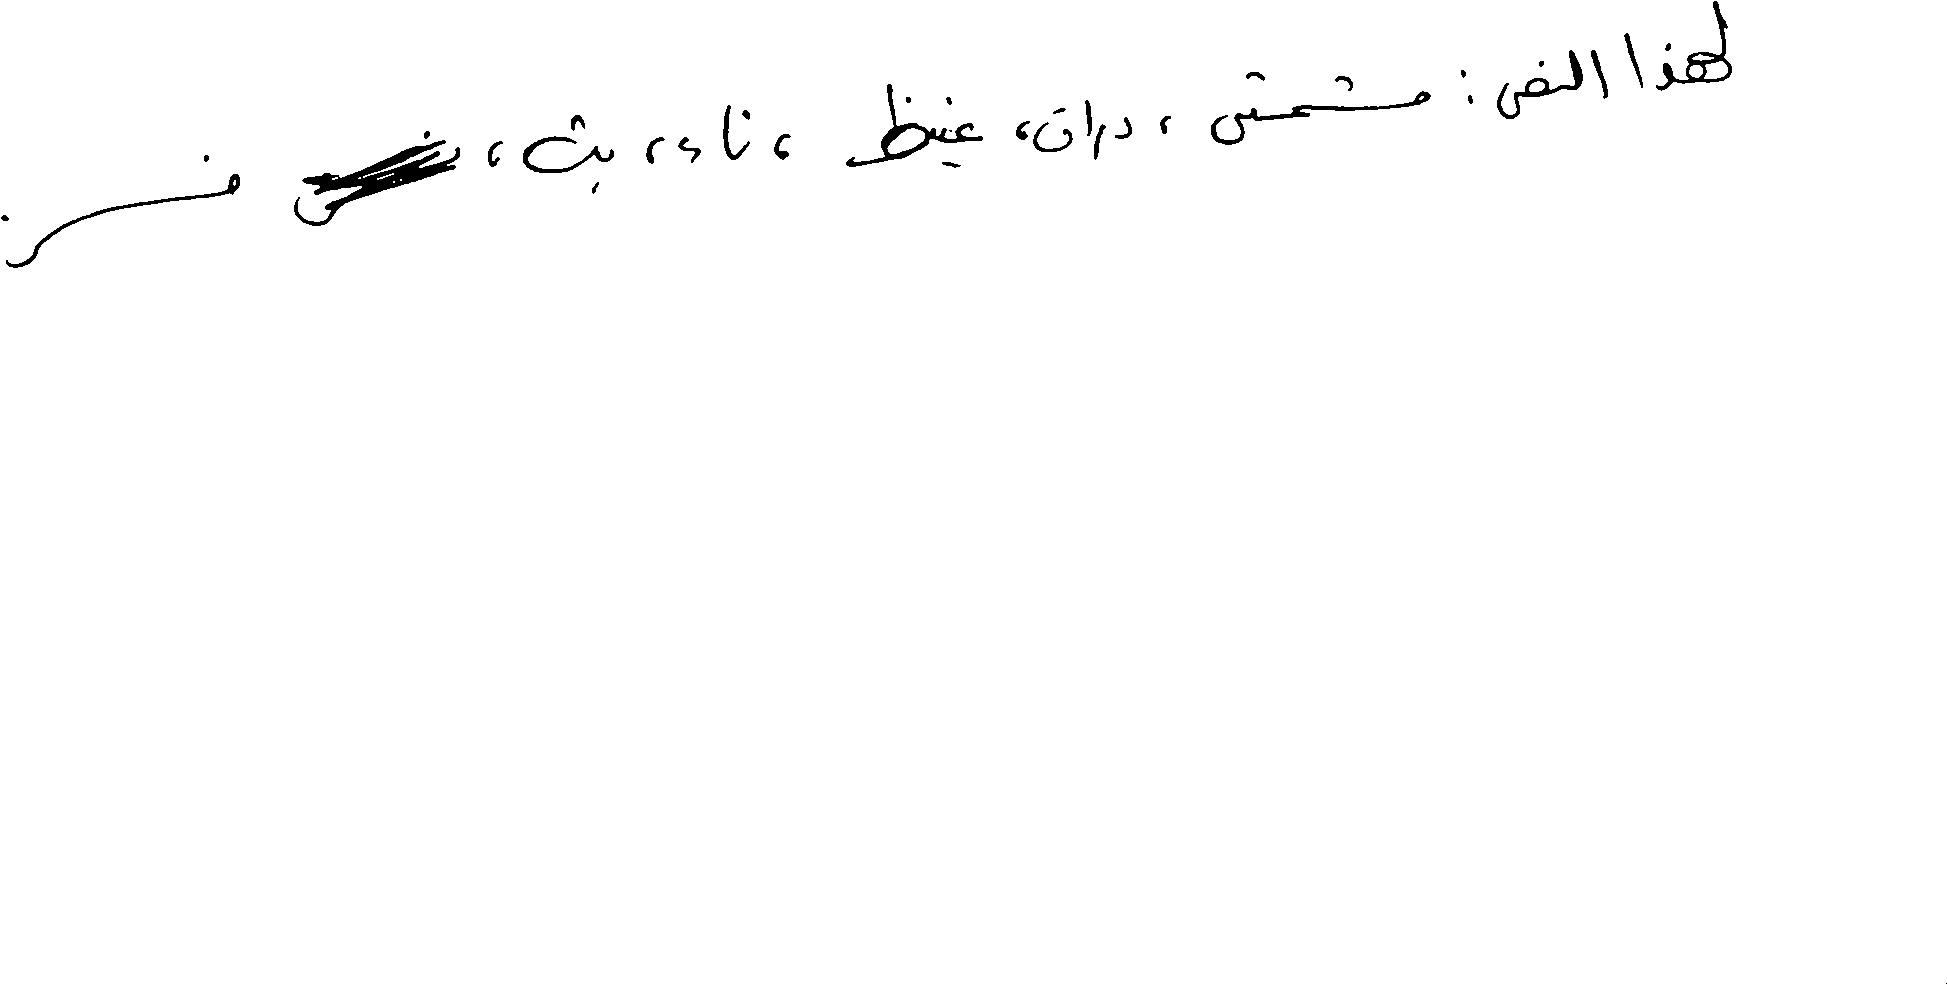 لهذا النص: مشمش، دران، غيظ، نا، د، بث، فسز